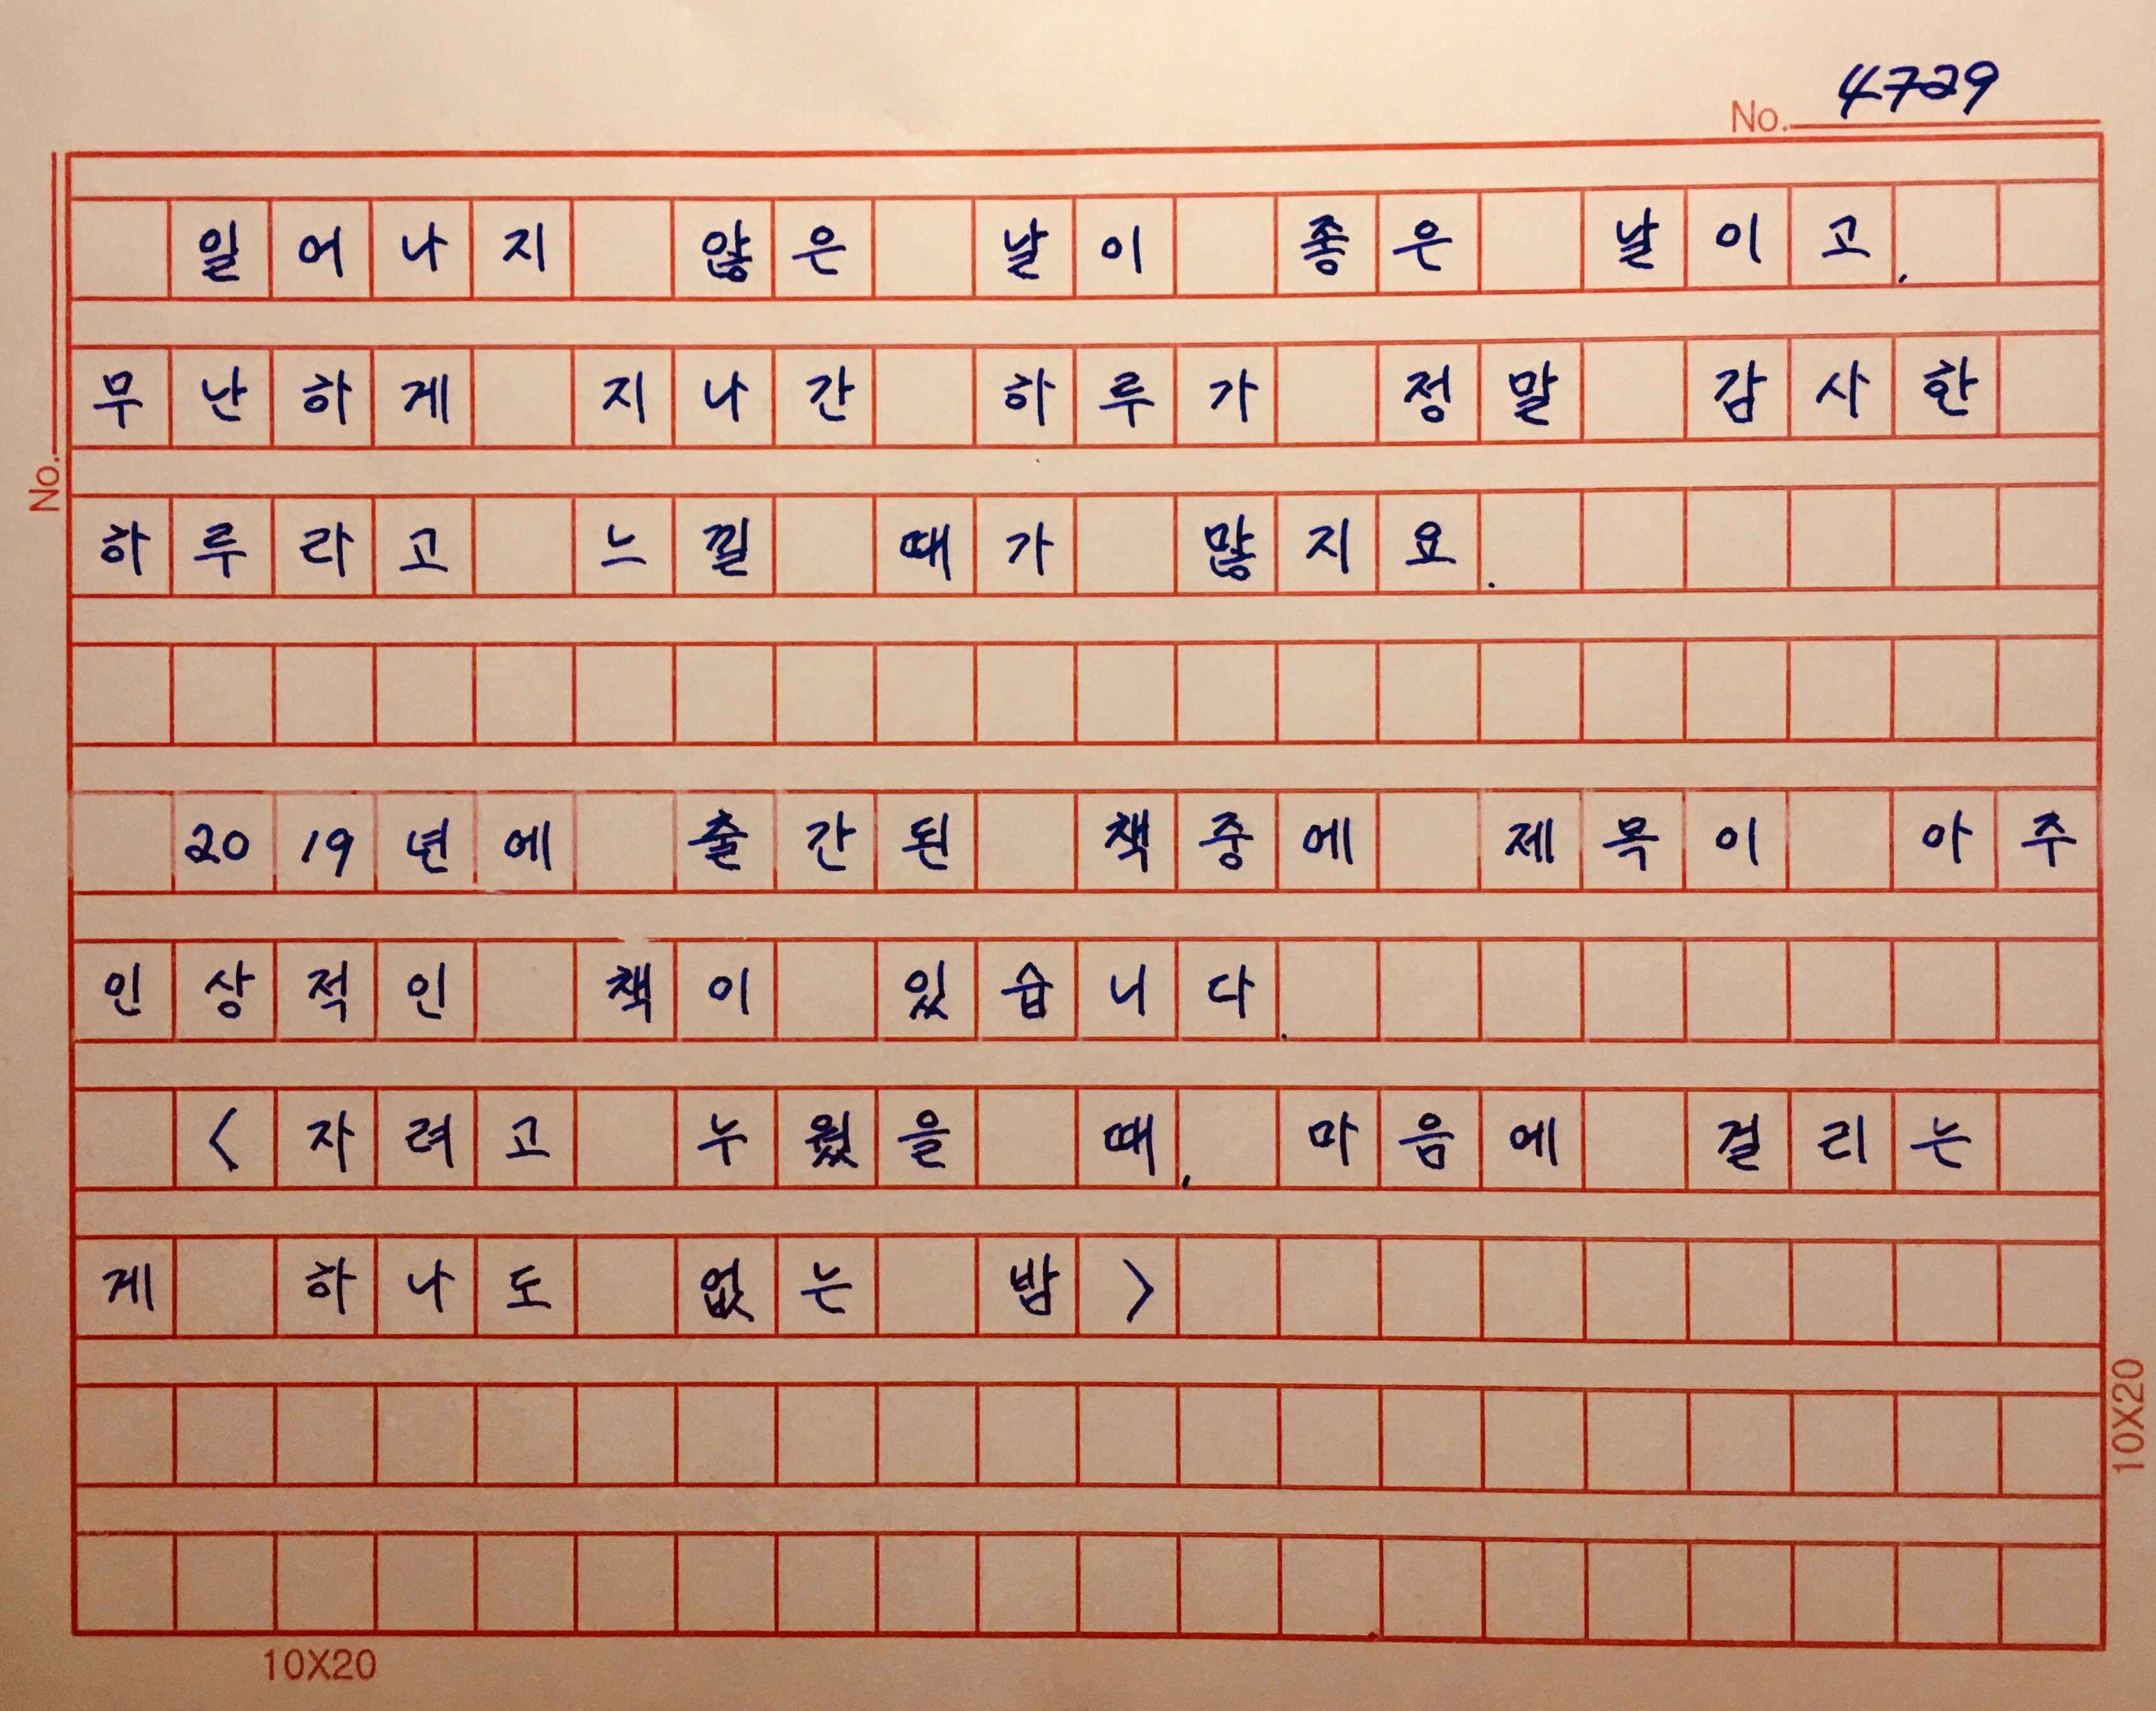 No. 4729
일어나지 않은 날이 좋은 날이고,
무난하게 지나간 하루가 정말 감사한
No.
하루라고 느낄 때가 많지요.
2019년에 출간된 책중에 제목이 아주
인상적인 책이 있습니다.
<자려고 누웠을 때, 마음에 걸리는
게 하나도 없는 밤>
10X20
10X20